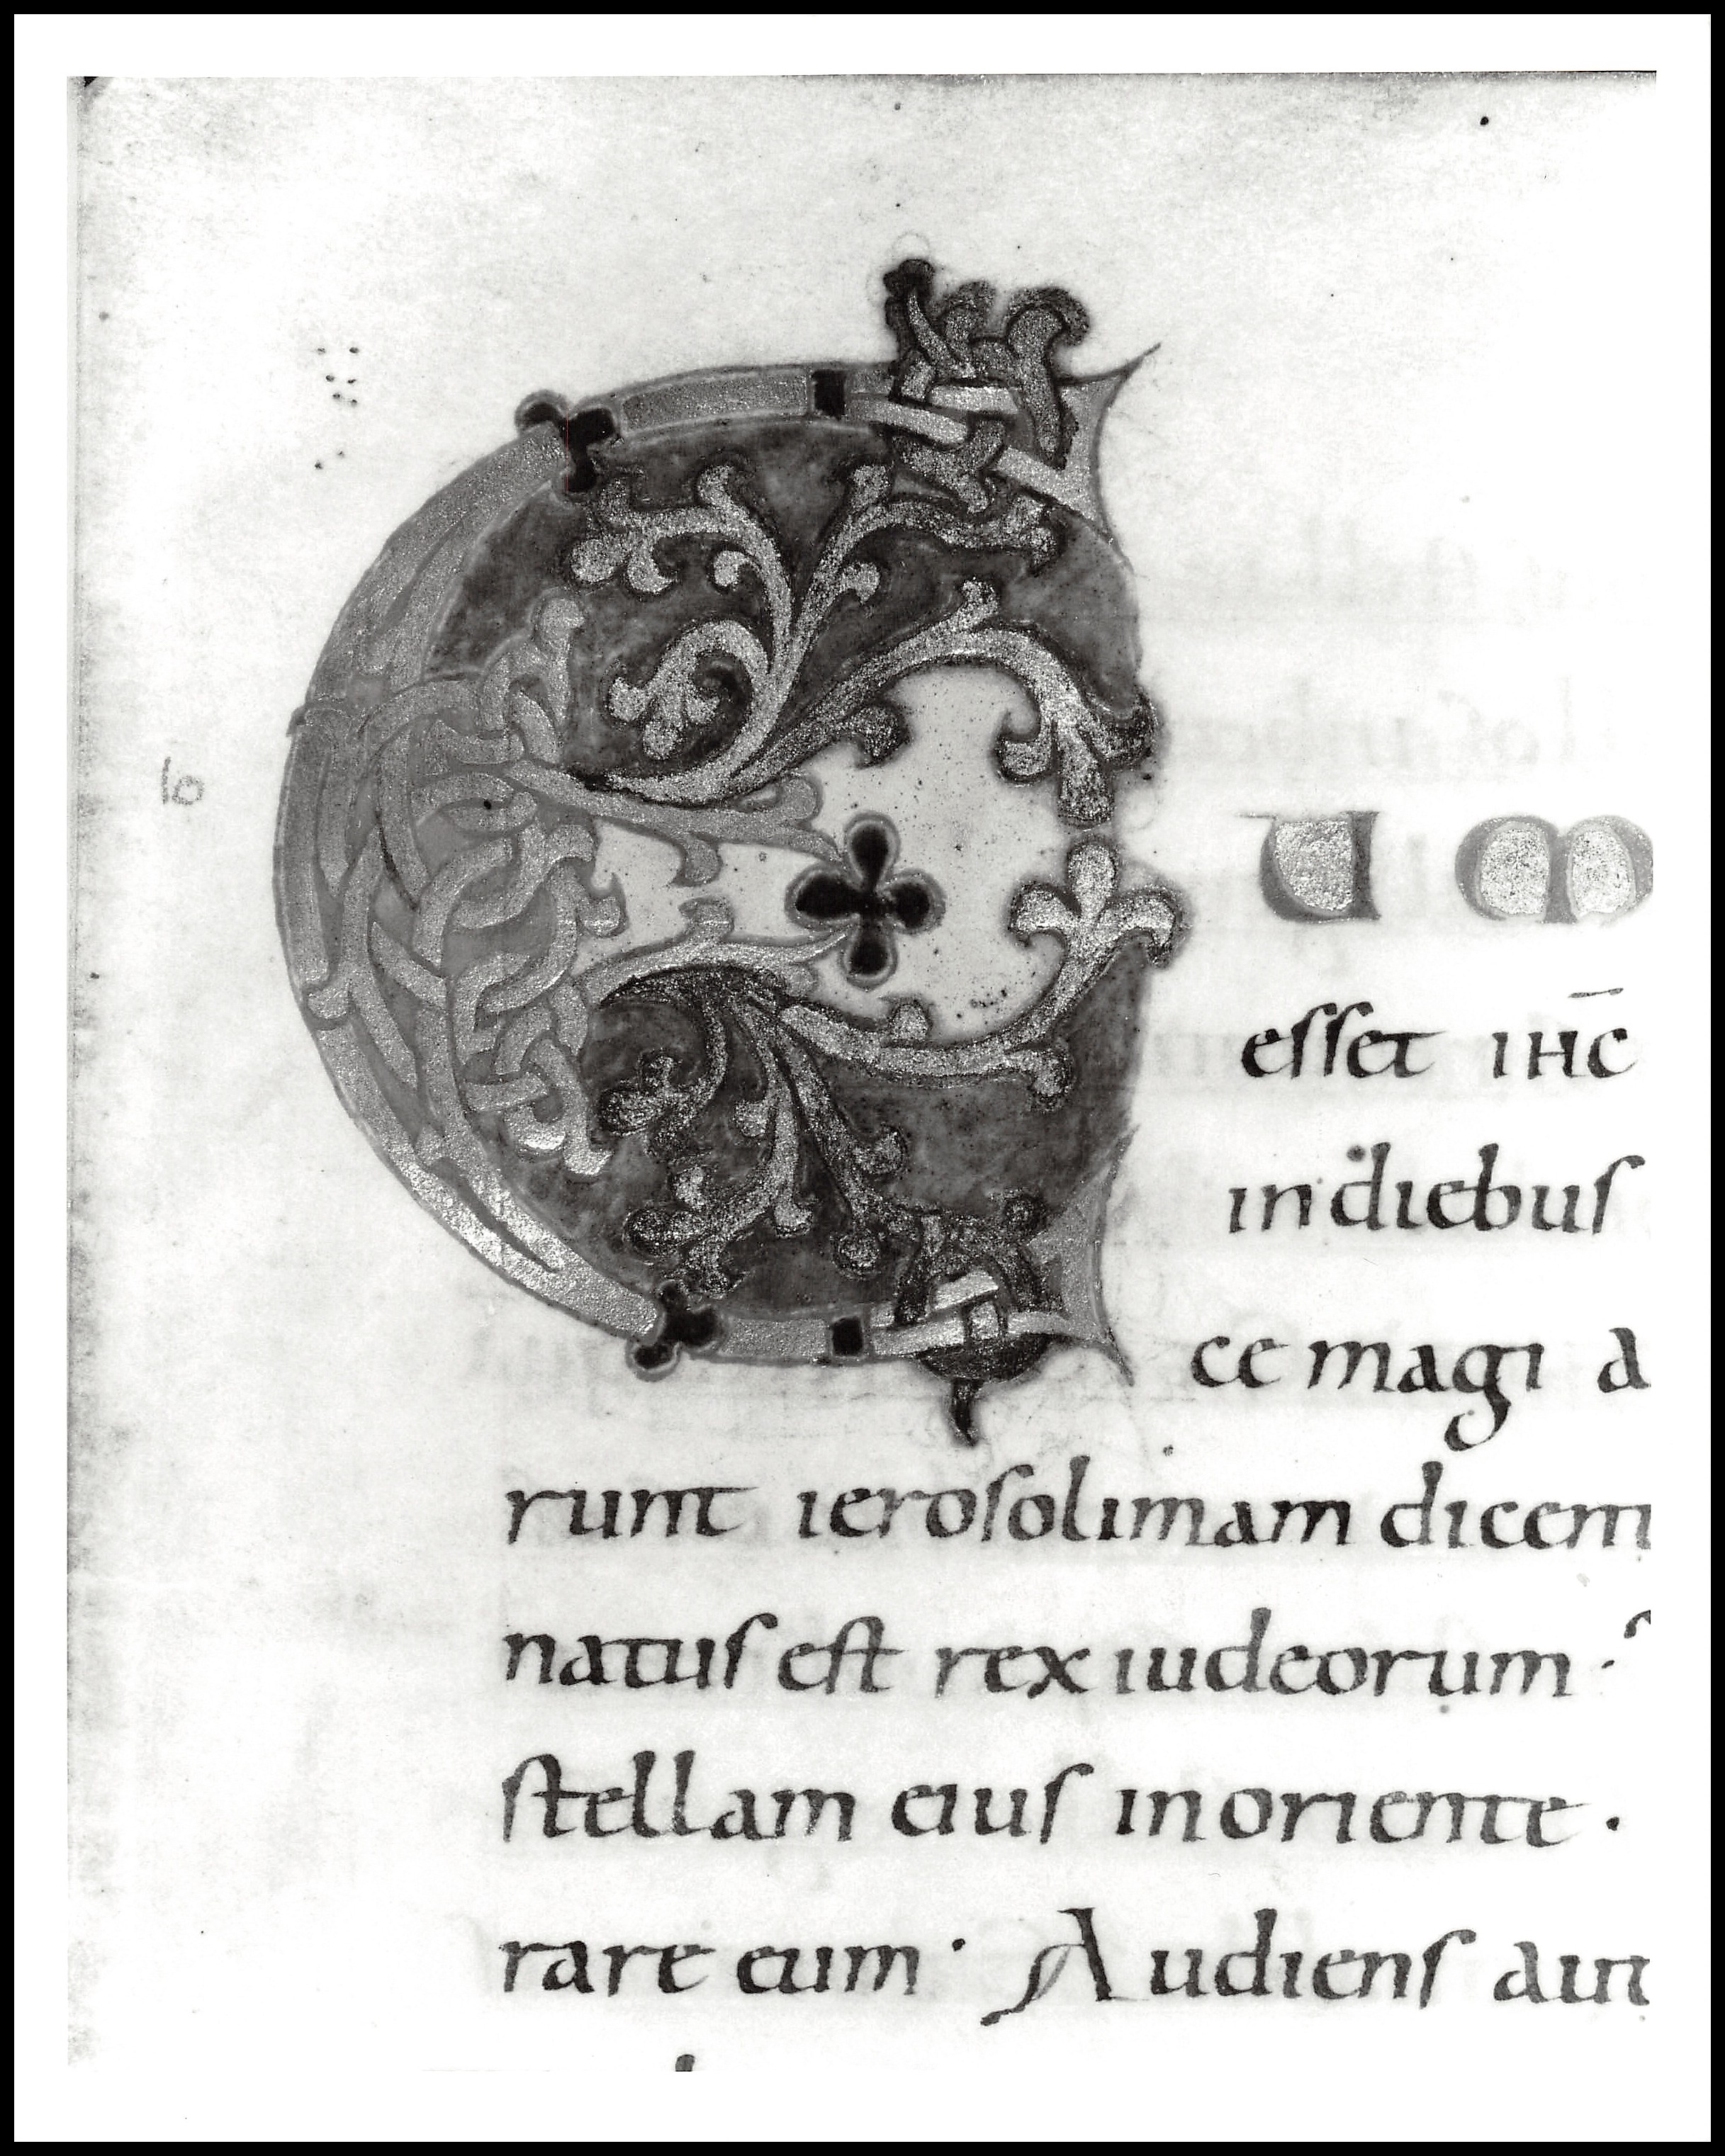 lo
CUM
esset ihc̅
indiebus
ce magi a
runt ierosolimam dicent
natus est rex iudeorum ·
stellam eius inoriente ·
rare eum · Audiens aut